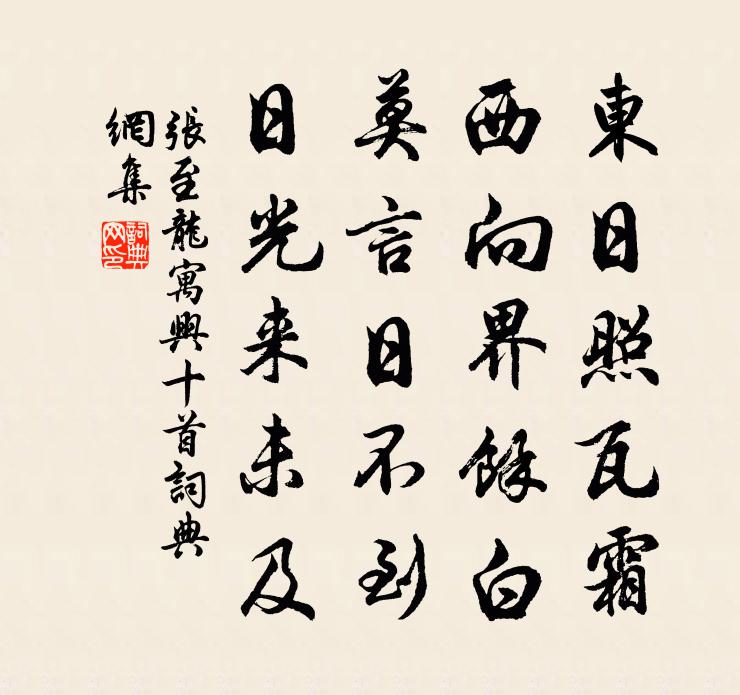 東日照瓦霜
西向界餘白
莫言日不到
日光来未及
張至龍寓興十首詞典
網集
詞典
网印